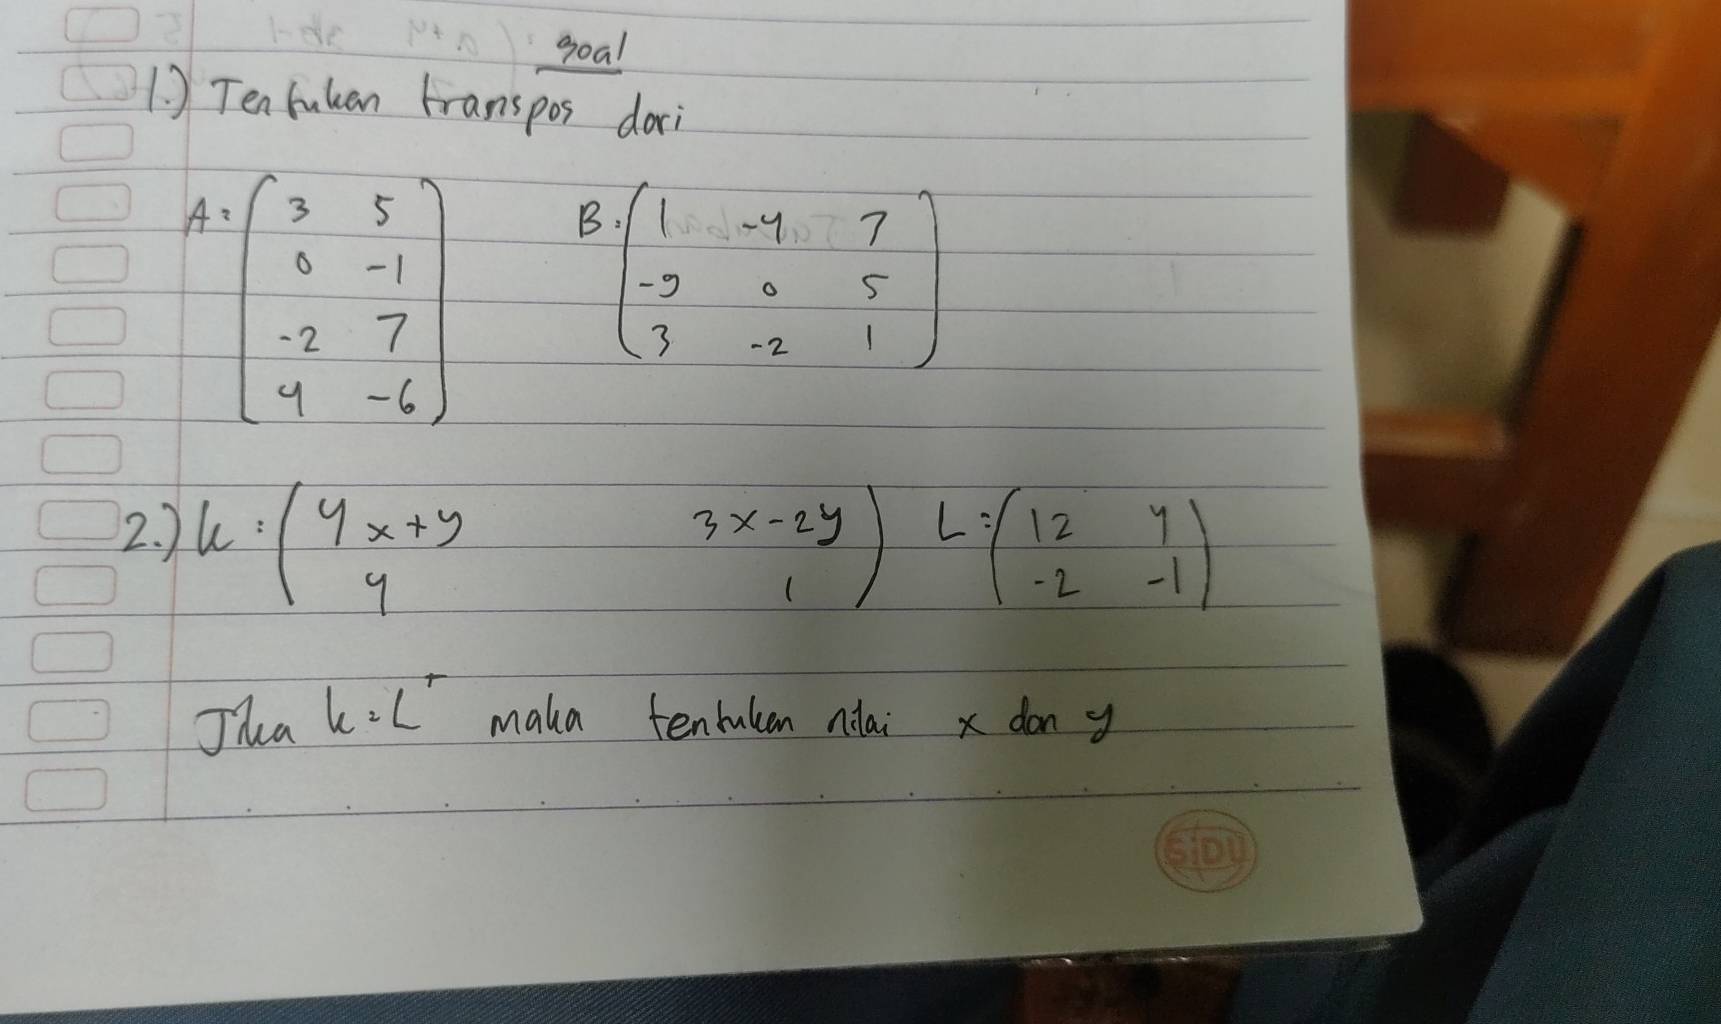 soal
1.) Tentuken transpos dari
A = ( 3 5 B = ( 1 -4 7 )
0 -1 -9 0 5
-2 7 3 -2 1
4 -6 )
2.) k = ( 4x+y 3x-2y ) L = ( 12 4 )
4 1 -2 -1
Jika k = L^T maka tentuken nilai x dan y
SiDU